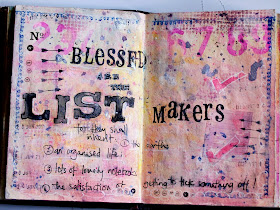 N
BLESSED
ARE
THE
LIST MAKERS
for they shall
inherit: ① the earth
② an organised life
③ lots of lovely notebooks
④ the satisfaction of getting to tick something off